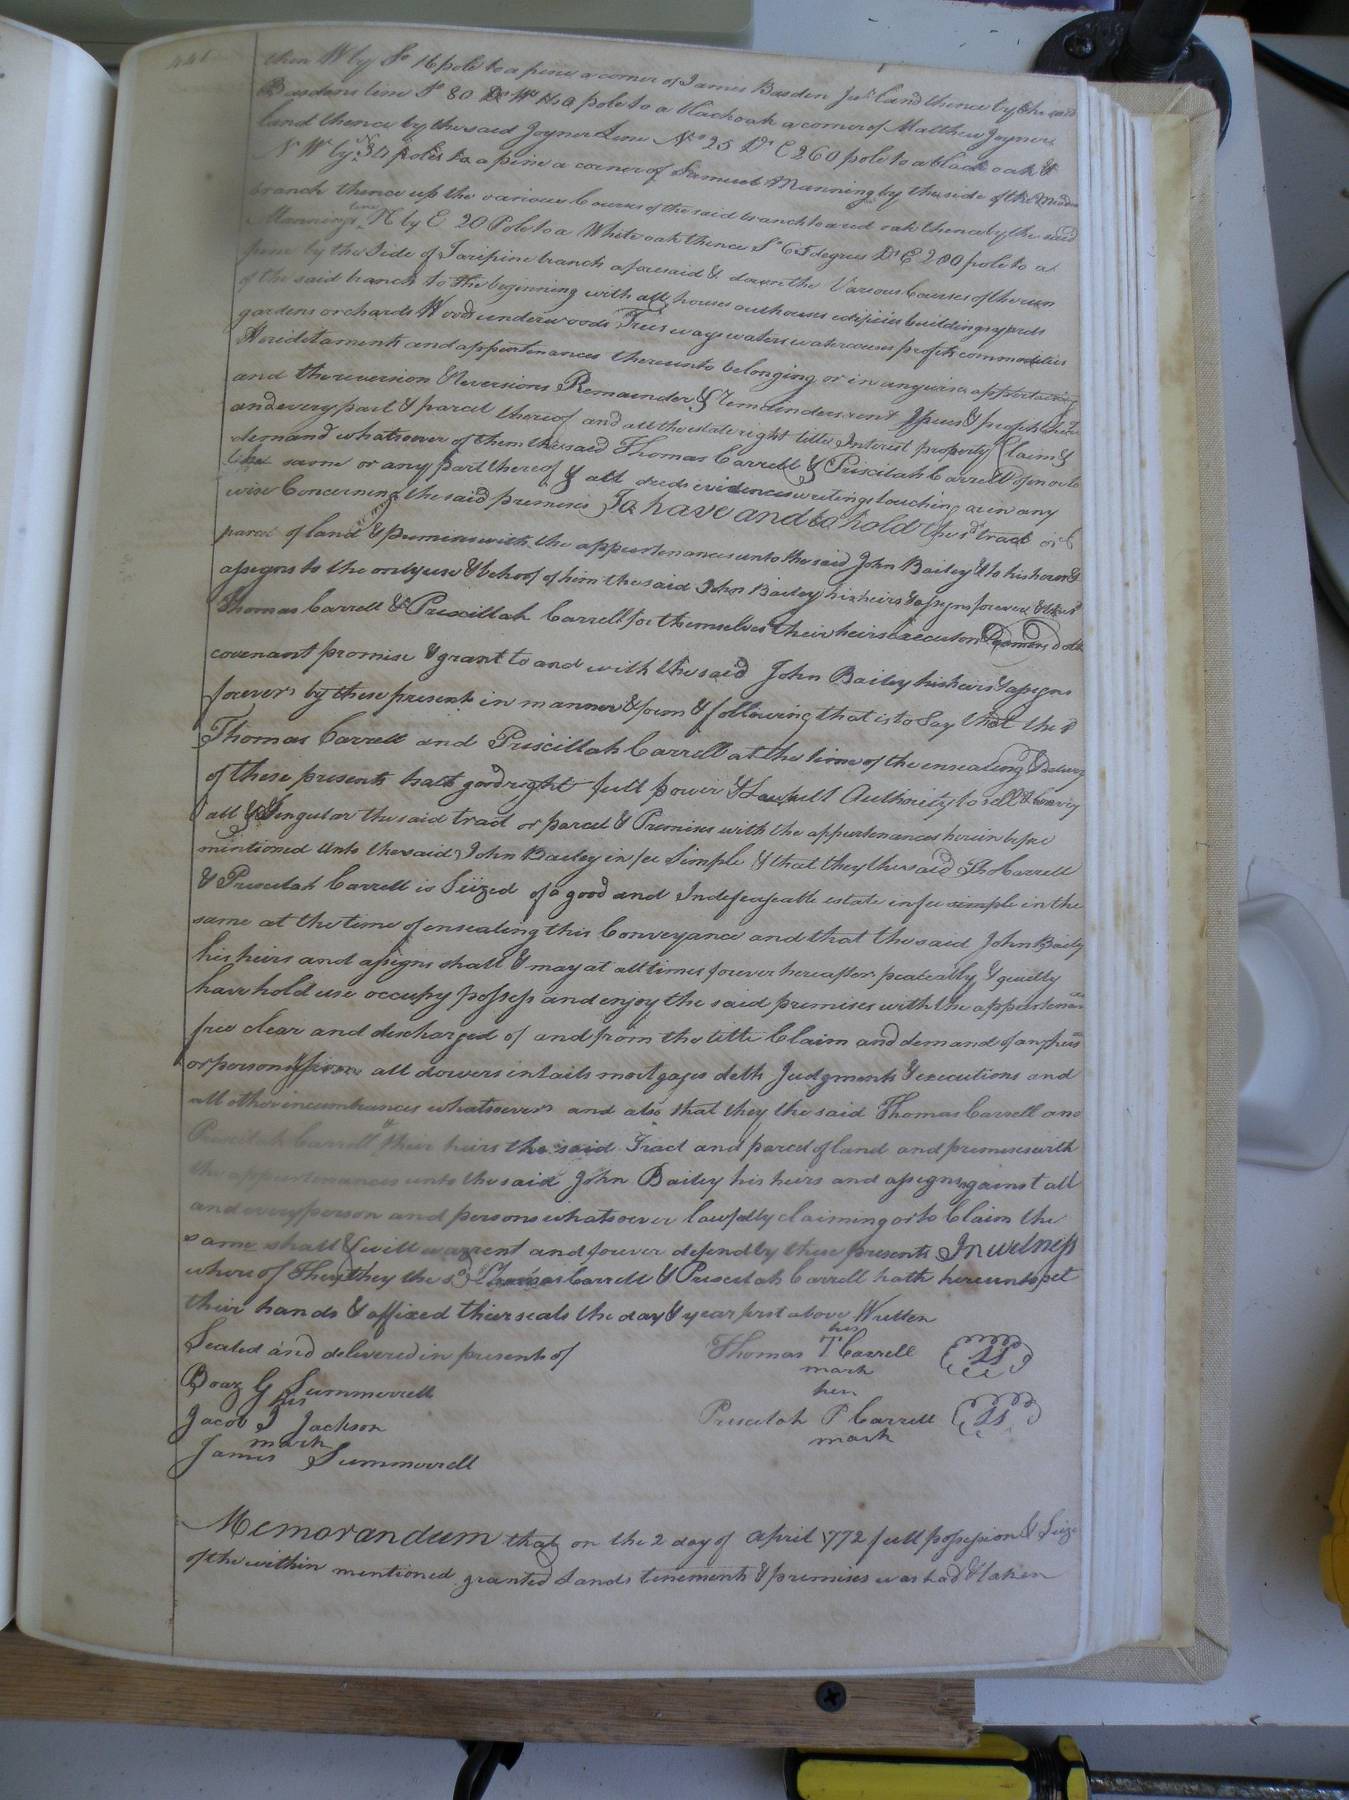 then W by So 16 pole to a pine a corner of James Basden Junr land thence by the said
Basdens line So 80 Dr Wt 140 pole to a black oak a corner of Matthew Joyners
land thence by the said Joyner Line No 25 Dr E 260 pole to a black oak &
N W by N 34 poles to a pine a corner of Samuel Manning by the side of the
branch thence up the various Courses of the said branch to a red oak thence by the said
Mannings line N by E 20 Pole to a White oak thence So 65 degrees Dr E 200 pole to a
pine by the Side of Taripine branch aforesaid & down the Various Courses of the run
of the said branch to the beginning with all houses outhouses edifices buildings yards
gardens orchards Wood underwoods Trees ways waters watercourses profits commodities
Hereditaments and appurtenances thereunto belonging or in anywise appertaining
and the reversion & Reversions Remainder & remainders rent Issues & profits
and every part & parcel thereof and all the estate right title Interest property Claim &
demand whatsoever of them the said Thomas Carrell & Priscilah Carrell of in or to
the same or any part thereof & all deeds evidences writings touching or in any
wise Concerning the said premises To have and to hold the sd tract or
parcel of land & premises with the appurtenances unto the said John Bailey & to his heirs &
assigns to the only use & behoof of him the said John Bailey his heirs & assigns forever & the sd
Thomas Carrell & Priscillah Carrell for themselves their heirs executors Admrs doth
covenant promise & grant to and with the said John Bailey his heirs & assigns
forever by these presents in manner & form & following that is to Say that the sd
Thomas Carrell and Priscillah Carrell at the time of the ensealing & Delivery
of these presents hath good right full power & Lawfull Authority to sell & Convey
all & Singular the said tract or parcel & Premises with the appurtenances herein before
mentioned unto the said John Bailey in fee Simple & that they the said Tho Carrell
& Priscilah Carrell is Seized of a good and Indefeasable estate in fee simple in the
same at the time of ensealing this Conveyance and that the said John Baily
his heirs and assigns shall & may at all times forever hereafter peaceably & quietly
have hold use occupy possess and enjoy the said premises with the appurtenances
free clear and discharged of and from the title Claim and demand of any person
or persons & from all dowers intails mortgages debts Judgments & executions and
all other incumbrances whatsoever and also that they the said Thomas Carrell and
Priscilah Carrell & their heirs the said Tract and parcel of land and premises with
the appurtenances unto the said John Bailey his heirs and assigns against all
and every person and persons whatsoever lawfully claiming or to Claim the
same shall & will warrent and forever defend by these presents In witness
whereof They they the sd Thomas Carrell & Priscilah Carrell hath hereunto set
their hands & affixed their seals the day & year first above Written
Sealed and delivered in presents of
Boaz G Summerrell
his
Jacob J Jackson
mark
James Summerrell
his
Thomas T Carrell LS
mark
her
Priscilah P Carrell LS
mark
Memorandum that on the 2 day of april 1772 full possession & Seize
of the within mentioned granted Lands tenements & premises was had & taken